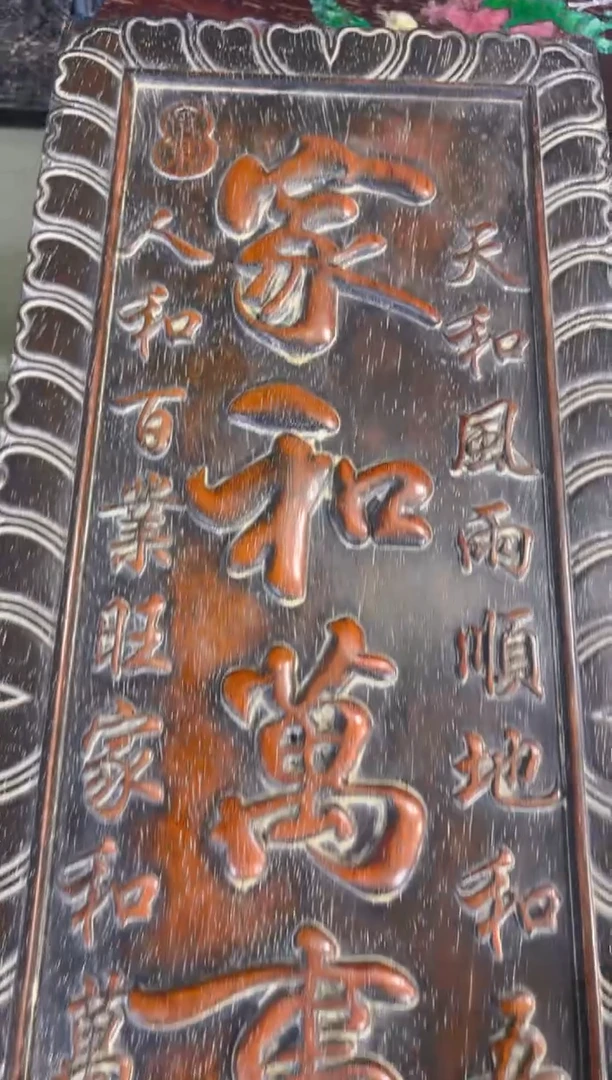 天和風雨順地和五
家和萬事
人和百業旺家和萬